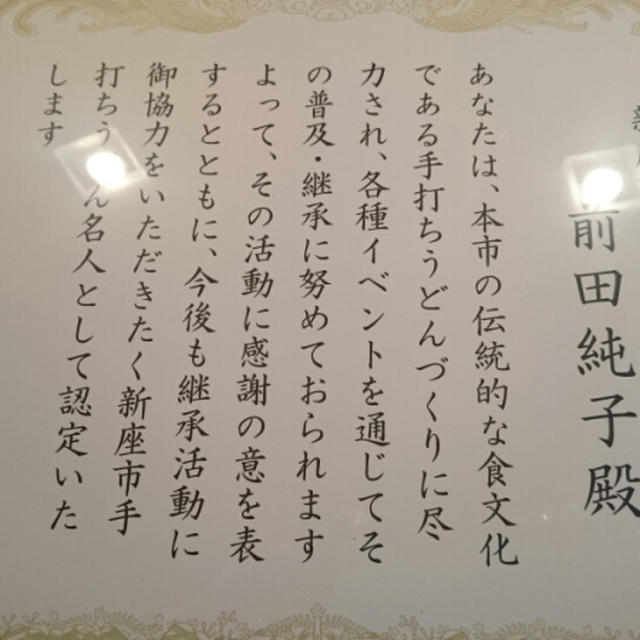 前田純子殿
あなたは、本市の伝統的な食文化
である手打ちうどんづくりに尽
力され、各種イベントを通じてそ
の普及・継承に努めておられます
よって、その活動に感謝の意を表
するとともに、今後も継承活動に
御協力をいただきたく新座市手
打ちう ん名人として認定いた
します